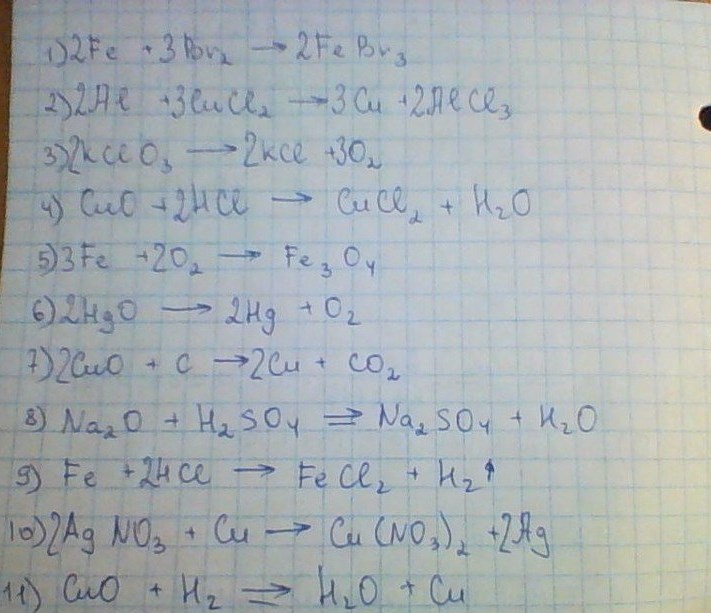 1) 2Fe + 3Br₂ → 2FeBr₃
2) 2Al + 3CuCl₂ → 3Cu + 2AlCl₃
3) 2KClO₃ → 2KCl + 3O₂
4) CuO + 2HCl → CuCl₂ + H₂O
5) 3Fe + 2O₂ → Fe₃O₄
6) 2HgO → 2Hg + O₂
7) 2CuO + C → 2Cu + CO₂
8) Na₂O + H₂SO₄ ⇒ Na₂SO₄ + H₂O
9) Fe + 2HCl → FeCl₂ + H₂↑
10) 2AgNO₃ + Cu → Cu(NO₃)₂ + 2Ag
11) CuO + H₂ ⇒ H₂O + Cu